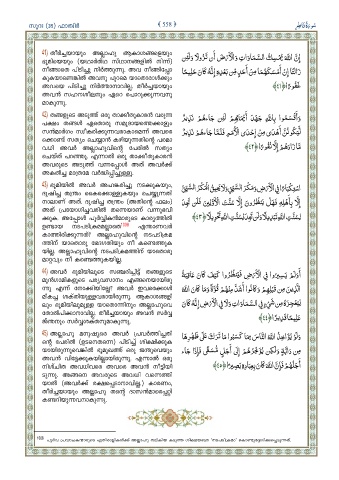 സൂറ (35) ഫാത്വിർ
﴾ 558 ﴿
سُورَةُ فَاطِر
41) തീർച്ചയായും അല്ലാഹു ആകാശങ്ങളെയും
ഭൂമിയെയും (യഥാർത്ഥ സ്ഥാനങ്ങളിൽ നിന്ന്)
നീങ്ങാതെ പിടിച്ചു നിർത്തുന്നു. അവ നീങ്ങിപ്പോ
കുകയാണെങ്കിൽ അവനു പുറമെ യാതൊരാൾക്കും
അവയെ പിടിച്ചു നിർത്താനാവില്ല. തീർച്ചയായും
അവൻ സഹനശീലനും ഏറെ പൊറുക്കുന്നവനു
മാകുന്നു.
إِنَّ اللَّهَ يُمْسِكُ السَّمَاوَاتِ وَالْأَرْضَ أَن تَزُولَا وَلَئِن
زَالَتَا إِنْ أَمْسَكَهُمَا مِنْ أَحَدٍ مِّن بَعْدِهِ إِنَّهُ كَانَ حَلِيمًا
غَفُورًا ﴿٤١﴾
42) തങ്ങളുടെ അടുത്ത് ഒരു താക്കീതുകാരൻ വരുന്ന
പക്ഷം തങ്ങൾ ഏതൊരു സമുദായത്തെക്കാളും
സന്മാർഗം സ്വീകരിക്കുന്നവരാകാമെന്ന് അവരെ
ക്കൊണ്ട് സത്യം ചെയ്യാൻ കഴിയുന്നതിന്റെ പരമാ
വധി അവർ അല്ലാഹുവിന്റെ പേരിൽ സത്യം
ചെയ്ത് പറഞ്ഞു. എന്നാൽ ഒരു താക്കീതുകാരൻ
അവരുടെ അടുത്ത് വന്നപ്പോൾ അത് അവർക്ക്
അകൽച്ച മാത്രമേ വർദ്ധിപ്പിച്ചുള്ളു.
وَأَقْسَمُوا بِاللَّهِ جَهْدَ أَيْمَانِهِمْ لَئِن جَاءَهُمْ نَذِيرٌ
لَّيَكُونُنَّ أَهْدَىٰ مِنْ إِحْدَى الْأُمَمِ فَلَمَّا جَاءَهُمْ نَذِيرٌ
مَّا زَادَهُمْ إِلَّا نُفُورًا ﴿٤٢﴾
43) ഭൂമിയിൽ അവർ അഹങ്കരിച്ചു നടക്കുകയും,
ദുഷിച്ച തന്ത്രം കൈക്കൊള്ളുകയും ചെയ്യുന്നതി
നാലാണ് അത്. ദുഷിച്ച തന്ത്രം (അതിന്റെ ഫലം)
അത് പ്രയോഗിച്ചവരിൽ തന്നെയാണ് വന്നുഭവി
ക്കുക. അപ്പോൾ പൂർവ്വികന്മാരുടെ കാര്യത്തിൽ
ഉണ്ടായ നടപടിക്രമമല്ലാതെ എന്താണവർ
കാത്തിരിക്കുന്നത്? അല്ലാഹുവിന്റെ നടപടിക്രമ
ത്തിന് യാതൊരു ഭേദഗതിയും നീ കണ്ടെത്തുക
യില്ല. അല്ലാഹുവിന്റെ നടപടിക്രമത്തിന് യാതൊരു
മാറ്റവും നീ കണ്ടെത്തുകയില്ല.
اسْتِكْبَارًا فِي الْأَرْضِ وَمَكْرَ السَّيِّئِ وَلَا يَحِيقُ الْمَكْرُ السَّيِّئُ
إِلَّا بِأَهْلِهِ فَهَلْ يَنظُرُونَ إِلَّا سُنَّتَ الْأَوَّلِينَ فَلَن تَجِدَ
لِسُنَّتِ اللَّهِ تَبْدِيلًا وَلَن تَجِدَ لِسُنَّتِ اللَّهِ تَحْوِيلًا ﴿٤٣﴾
44) അവർ ഭൂമിയിലൂടെ സഞ്ചരിച്ചിട്ട് തങ്ങളുടെ
മുൻഗാമികളുടെ പര്യവസാനം എങ്ങനെയായിരു
ന്നു എന്ന് നോക്കിയില്ലേ? അവർ ഇവരെക്കാൾ
മികച്ച ശക്തിയുള്ളവരായിരുന്നു. ആകാശങ്ങളി
ലും ഭൂമിയിലുമുള്ള യാതൊന്നിനും അല്ലാഹുവെ
തോൽപിക്കാനാവില്ല. തീർച്ചയായും അവൻ സർവ്വ
ജ്ഞനും സർവ്വശക്തനുമാകുന്നു.
أَوَلَمْ يَسِيرُوا فِي الْأَرْضِ فَيَنظُرُوا كَيْفَ كَانَ عَاقِبَةُ
الَّذِينَ مِن قَبْلِهِمْ وَكَانُوا أَشَدَّ مِنْهُمْ قُوَّةً وَمَا كَانَ اللَّهُ
لِيُعْجِزَهُ مِن شَيْءٍ فِي السَّمَاوَاتِ وَلَا فِي الْأَرْضِ إِنَّهُ كَانَ
عَلِيمًا قَدِيرًا ﴿٤٤﴾
45) അല്ലാഹു മനുഷ്യരെ അവർ പ്രവർത്തിച്ചതി
ന്റെ പേരിൽ (ഉടനെതന്നെ) പിടിച്ച് ശിക്ഷിക്കുക
യായിരുന്നുവെങ്കിൽ ഭൂമുഖത്ത് ഒരു ജന്തുവെയും
അവൻ വിട്ടേക്കുകയില്ലായിരുന്നു. എന്നാൽ ഒരു
നിശ്ചിത അവധിവരെ അവരെ അവൻ നീട്ടിയി
ടുന്നു. അങ്ങനെ അവരുടെ അവധി വന്നെത്തി
യാൽ (അവർക്ക് രക്ഷപ്പെടാനാവില്ല.) കാരണം,
തീർച്ചയായും അല്ലാഹു തന്റെ ദാസന്മാരെപ്പറ്റി
കണ്ടറിയുന്നവനാകുന്നു.
وَلَوْ يُؤَاخِذُ اللَّهُ النَّاسَ بِمَا كَسَبُوا مَا تَرَكَ عَلَىٰ ظَهْرِهَا
مِن دَابَّةٍ وَلَٰكِن يُؤَخِّرُهُمْ إِلَىٰ أَجَلٍ مُّسَمًّى فَإِذَا جَاءَ
أَجَلُهُمْ فَإِنَّ اللَّهَ كَانَ بِعِبَادِهِ بَصِيرًا ﴿٤٥﴾